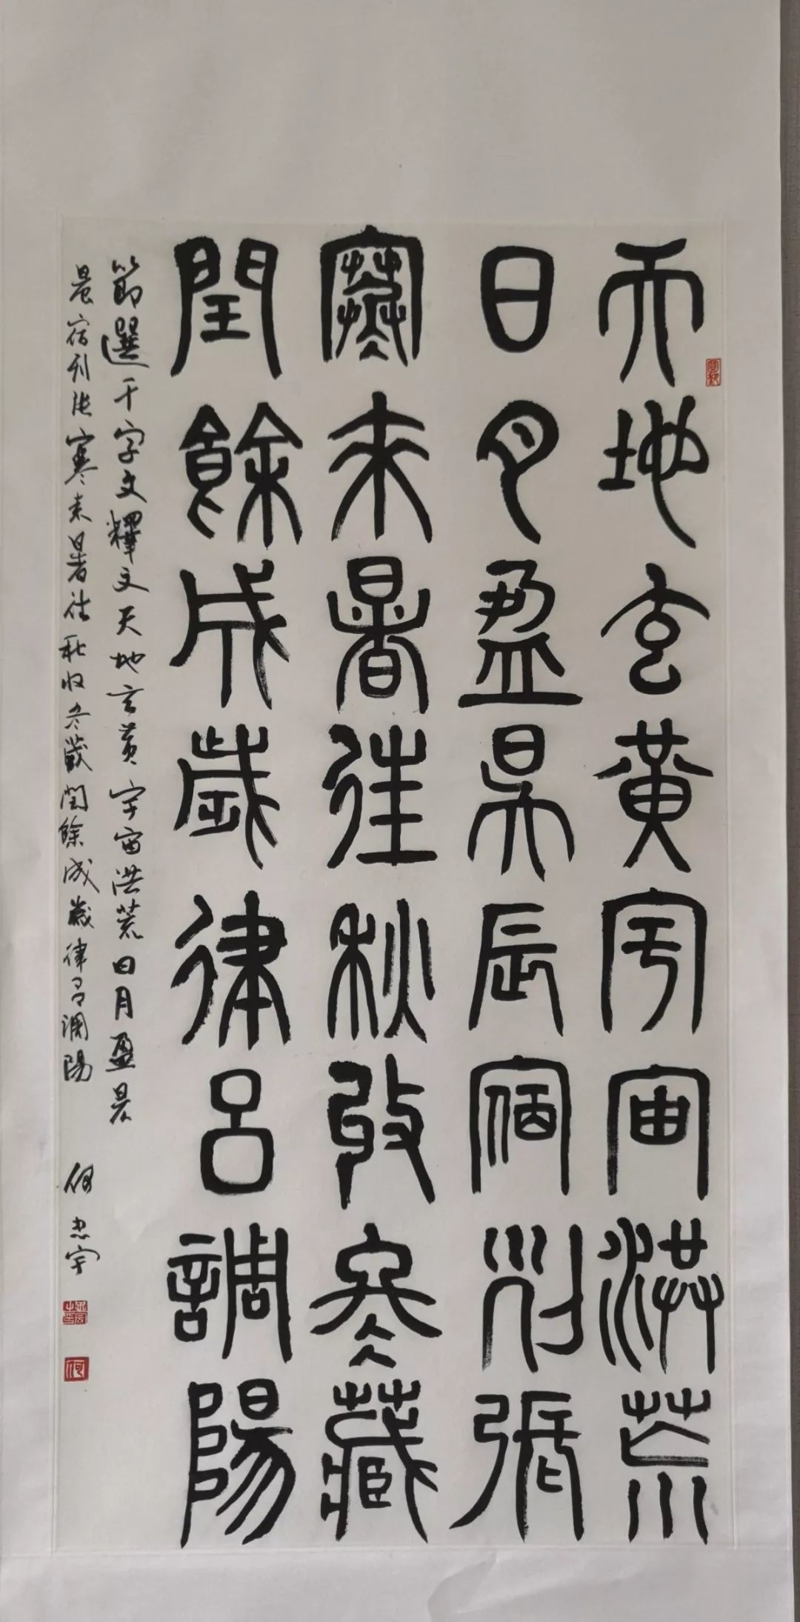 天地玄黃宇宙洪荒
日月盈昃辰宿列張
寒來暑往秋收冬藏
閏餘成歲律呂調陽
節選千字文釋文天地玄黃宇宙洪荒日月盈昃
辰宿列張寒来暑往秋收冬藏閏餘成歲律呂調陽
何忠宇